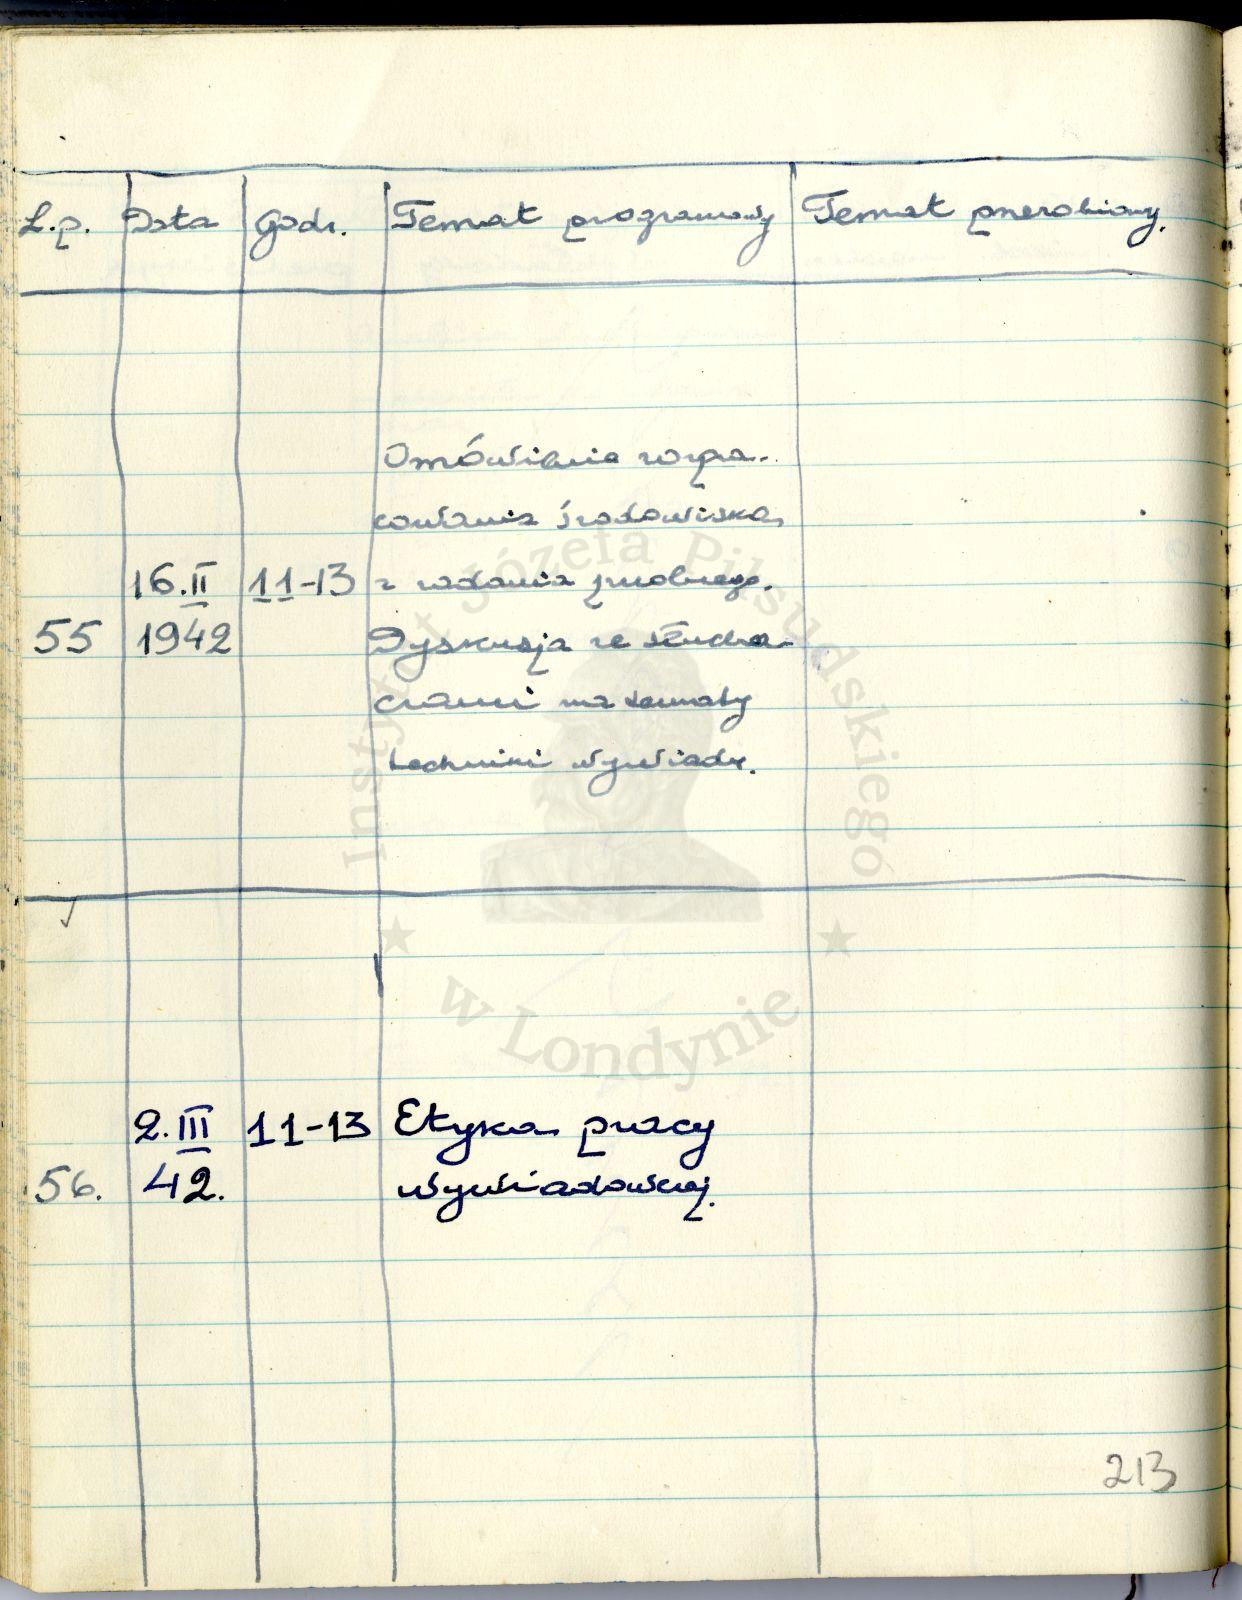 L.p. Data Godz. Temat programowy Temat przerobiony.
Omówienie rozpra-
cowania środowiska
16.II 11-13 z zadania próbnego.
55 1942 Dyskusja ze słucha-
czami na tematy
techniki wywiadu.
2.III 11-13 Etyka pracy
56. 42. wywiadowczej.
213
Instytut Józefa Piłsudskiego
w Londynie